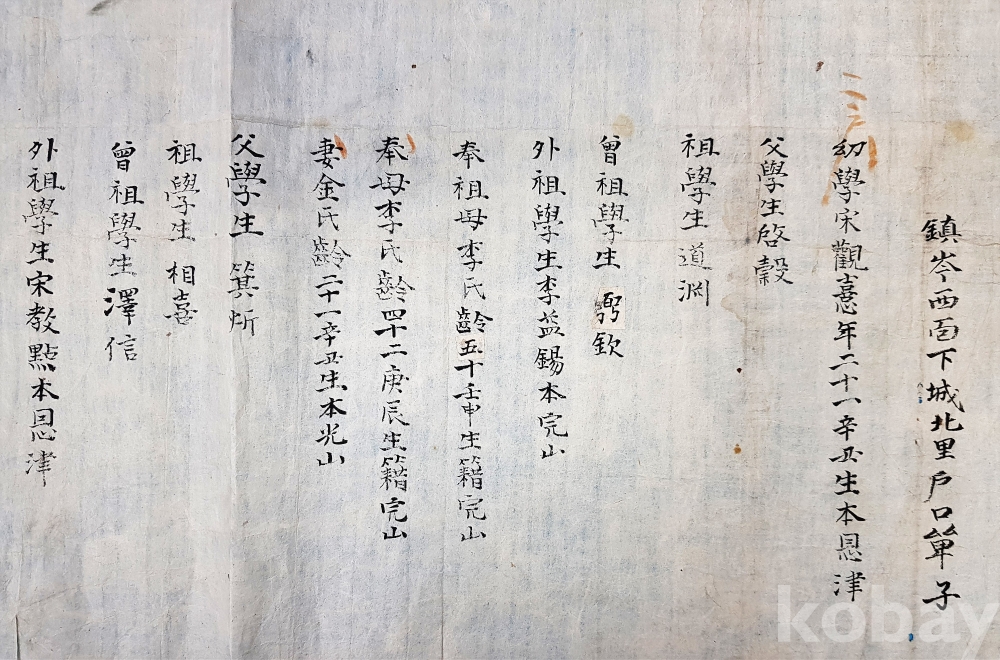 鎮岑西面下城北里戶口單子
幼學宋觀憙年二十一辛丑生本恩津
父學生啓㝅
祖學生道淵
曾祖學生 欽
外祖學生李益錫本完山
奉祖母李氏齡五十壬申生籍完山
奉母李氏齡四十二庚辰生籍完山
妻金氏齡二十一辛丑生本光山
父學生箕炘
祖學生相喜
曾祖學生澤信
外祖學生宋教點本恩津
kobay